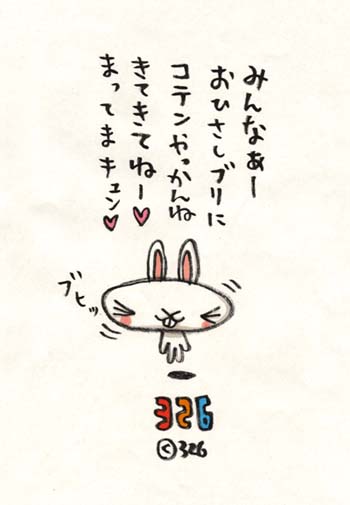 みんなぁー
おひさしブリに
コテンやっかんね
きてきてねー♥
まってまキュン♥
ブヒッ
326
©326